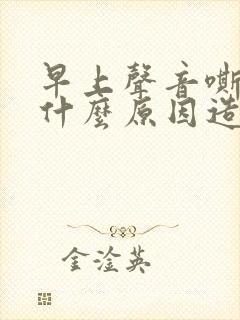 早上聲音嘶
什麼原因造
金淦英